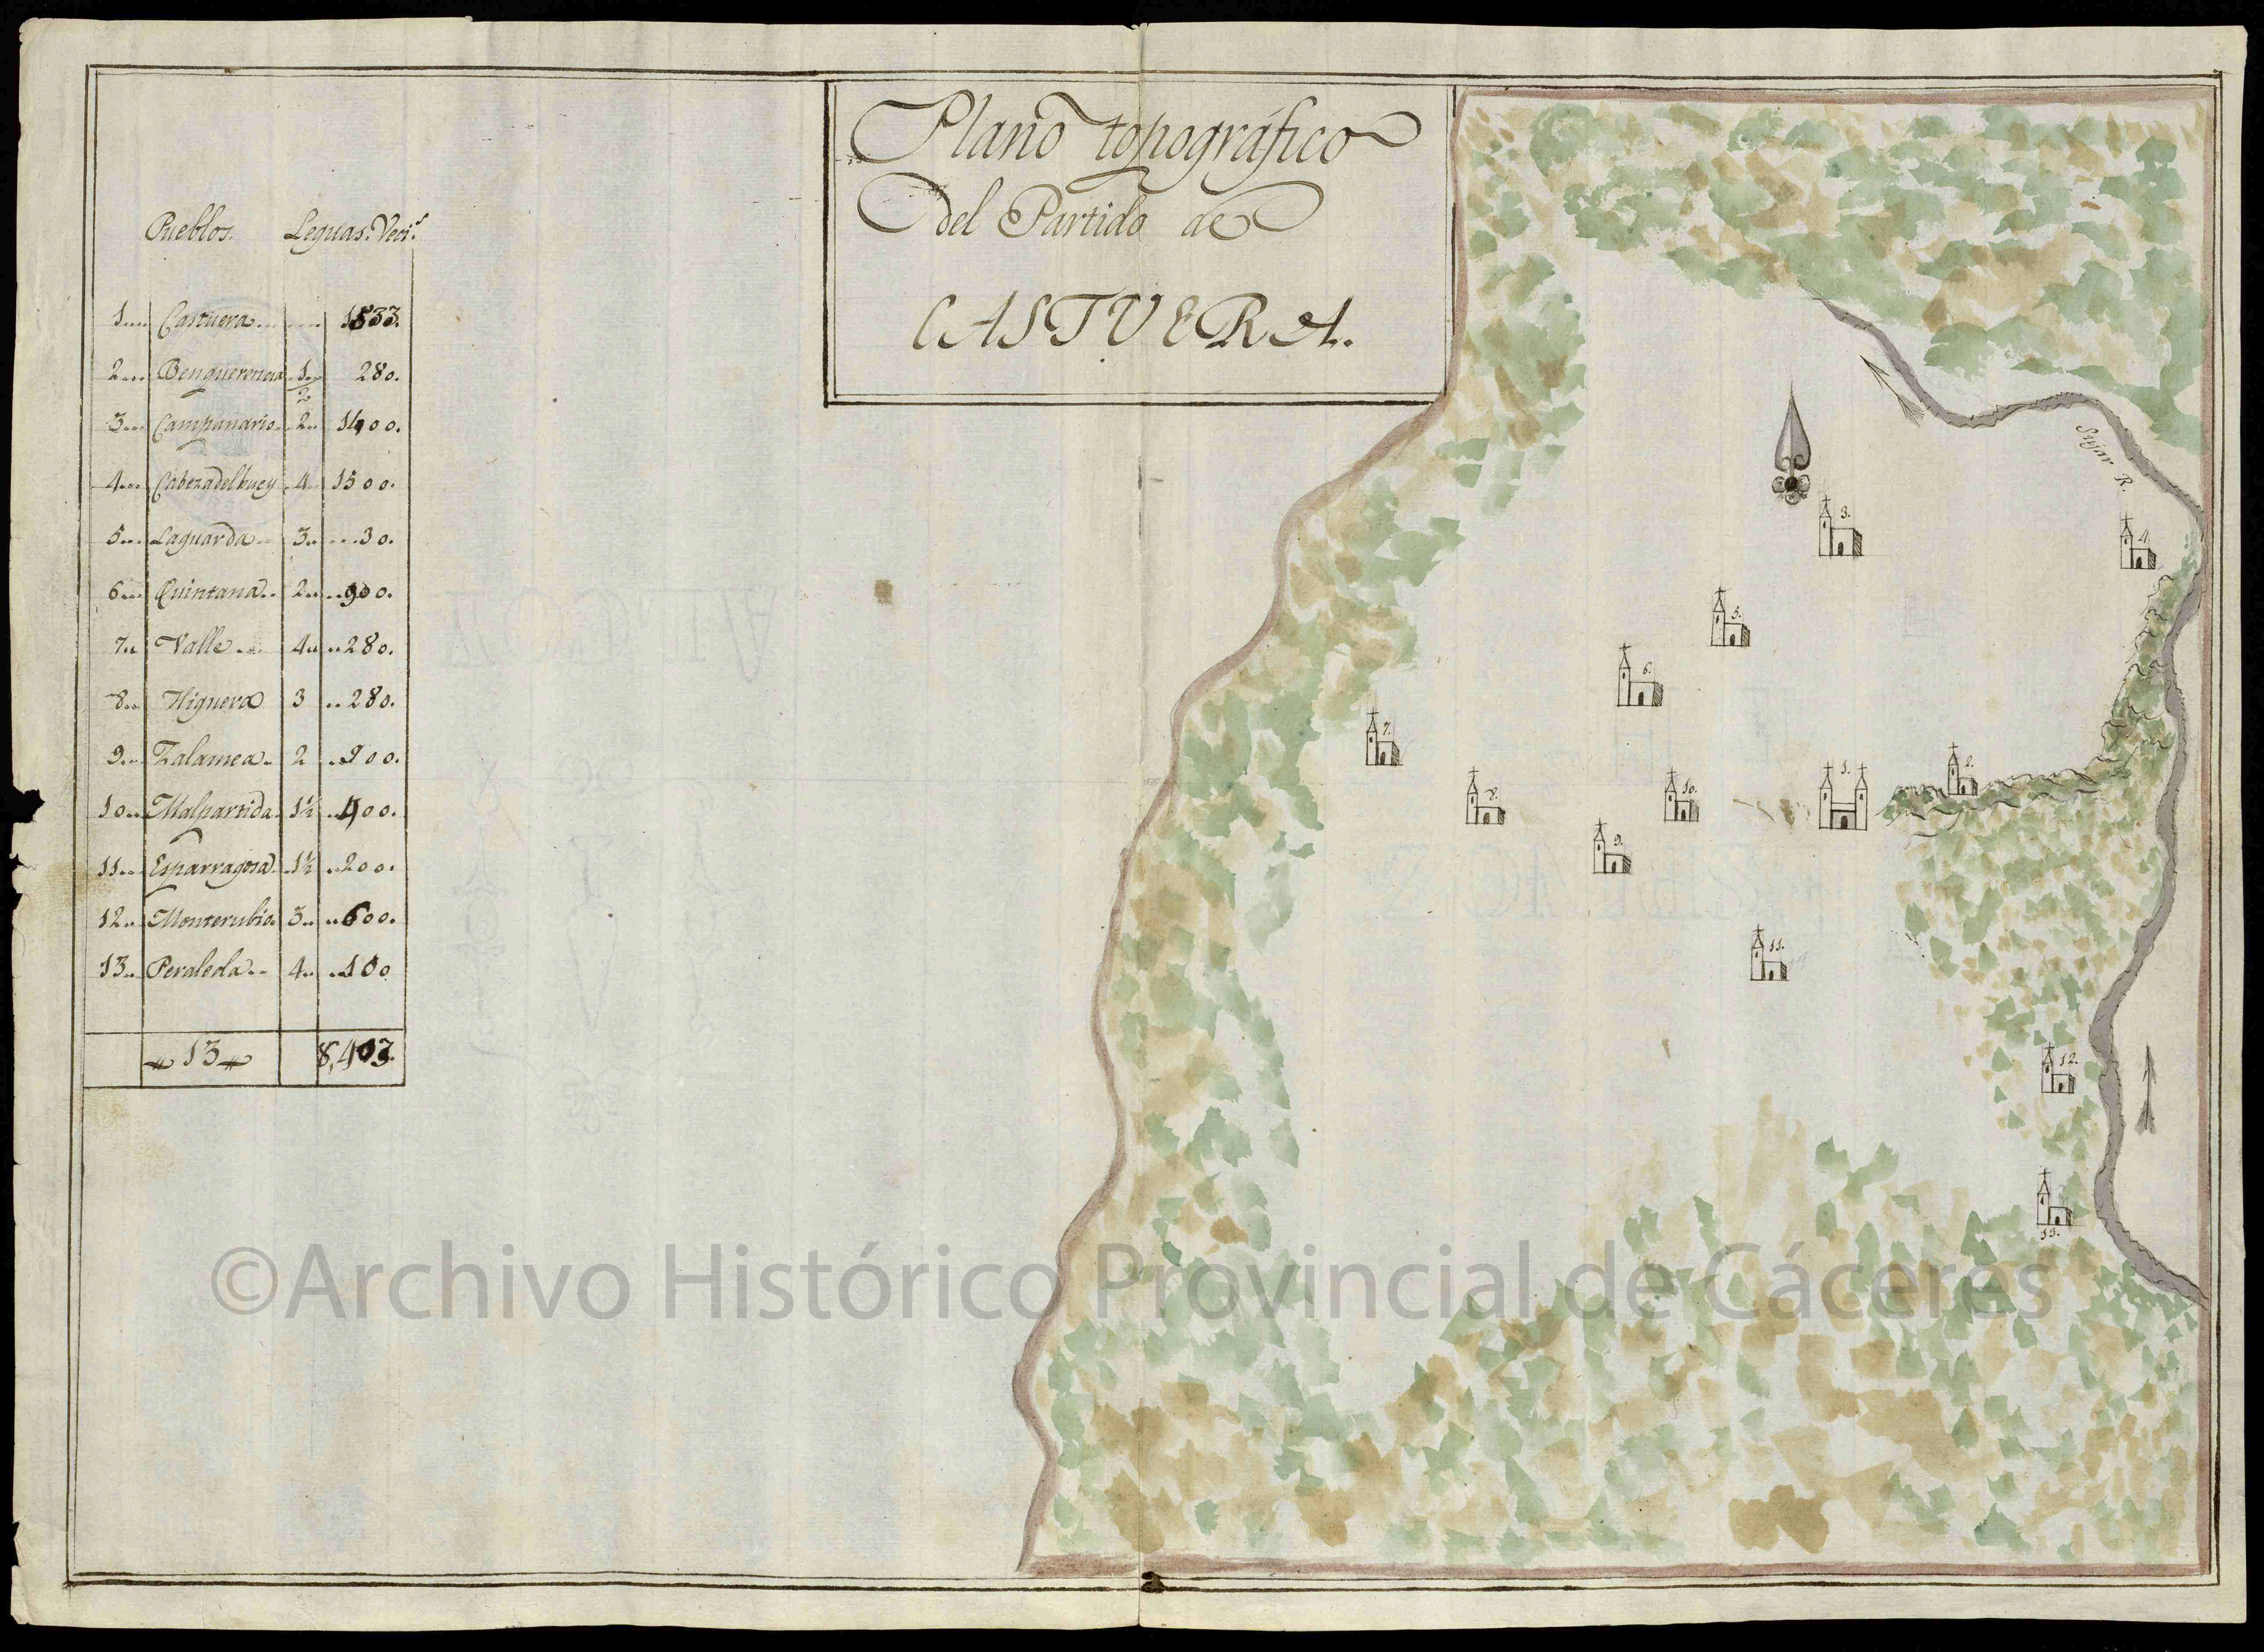 Plano topográfico
del Partido de
CASTVERA.
Pueblos. Leguas. Veci.s
1 Castuera 1533.
2 Benquerencia 1/2 280.
3 Campanario 2 1400.
4 Cabezadelbuey 4 1500.
5 Laguarda 3 30.
6 Quintana 2 900.
7 Valle 4 280.
8 Higuera 3 280.
9 Zalamea 2 900.
10 Malpartida 1½ 400.
11 Esparragosa 1½ 200.
12 Monterubio 3 600.
13 Peraleda 4 100
13 8,403.
Sujar R.
3.
4.
5.
6.
7.
1.
2.
8.
10.
9.
11.
12.
13.
©Archivo Histórico Provincial de Cáceres